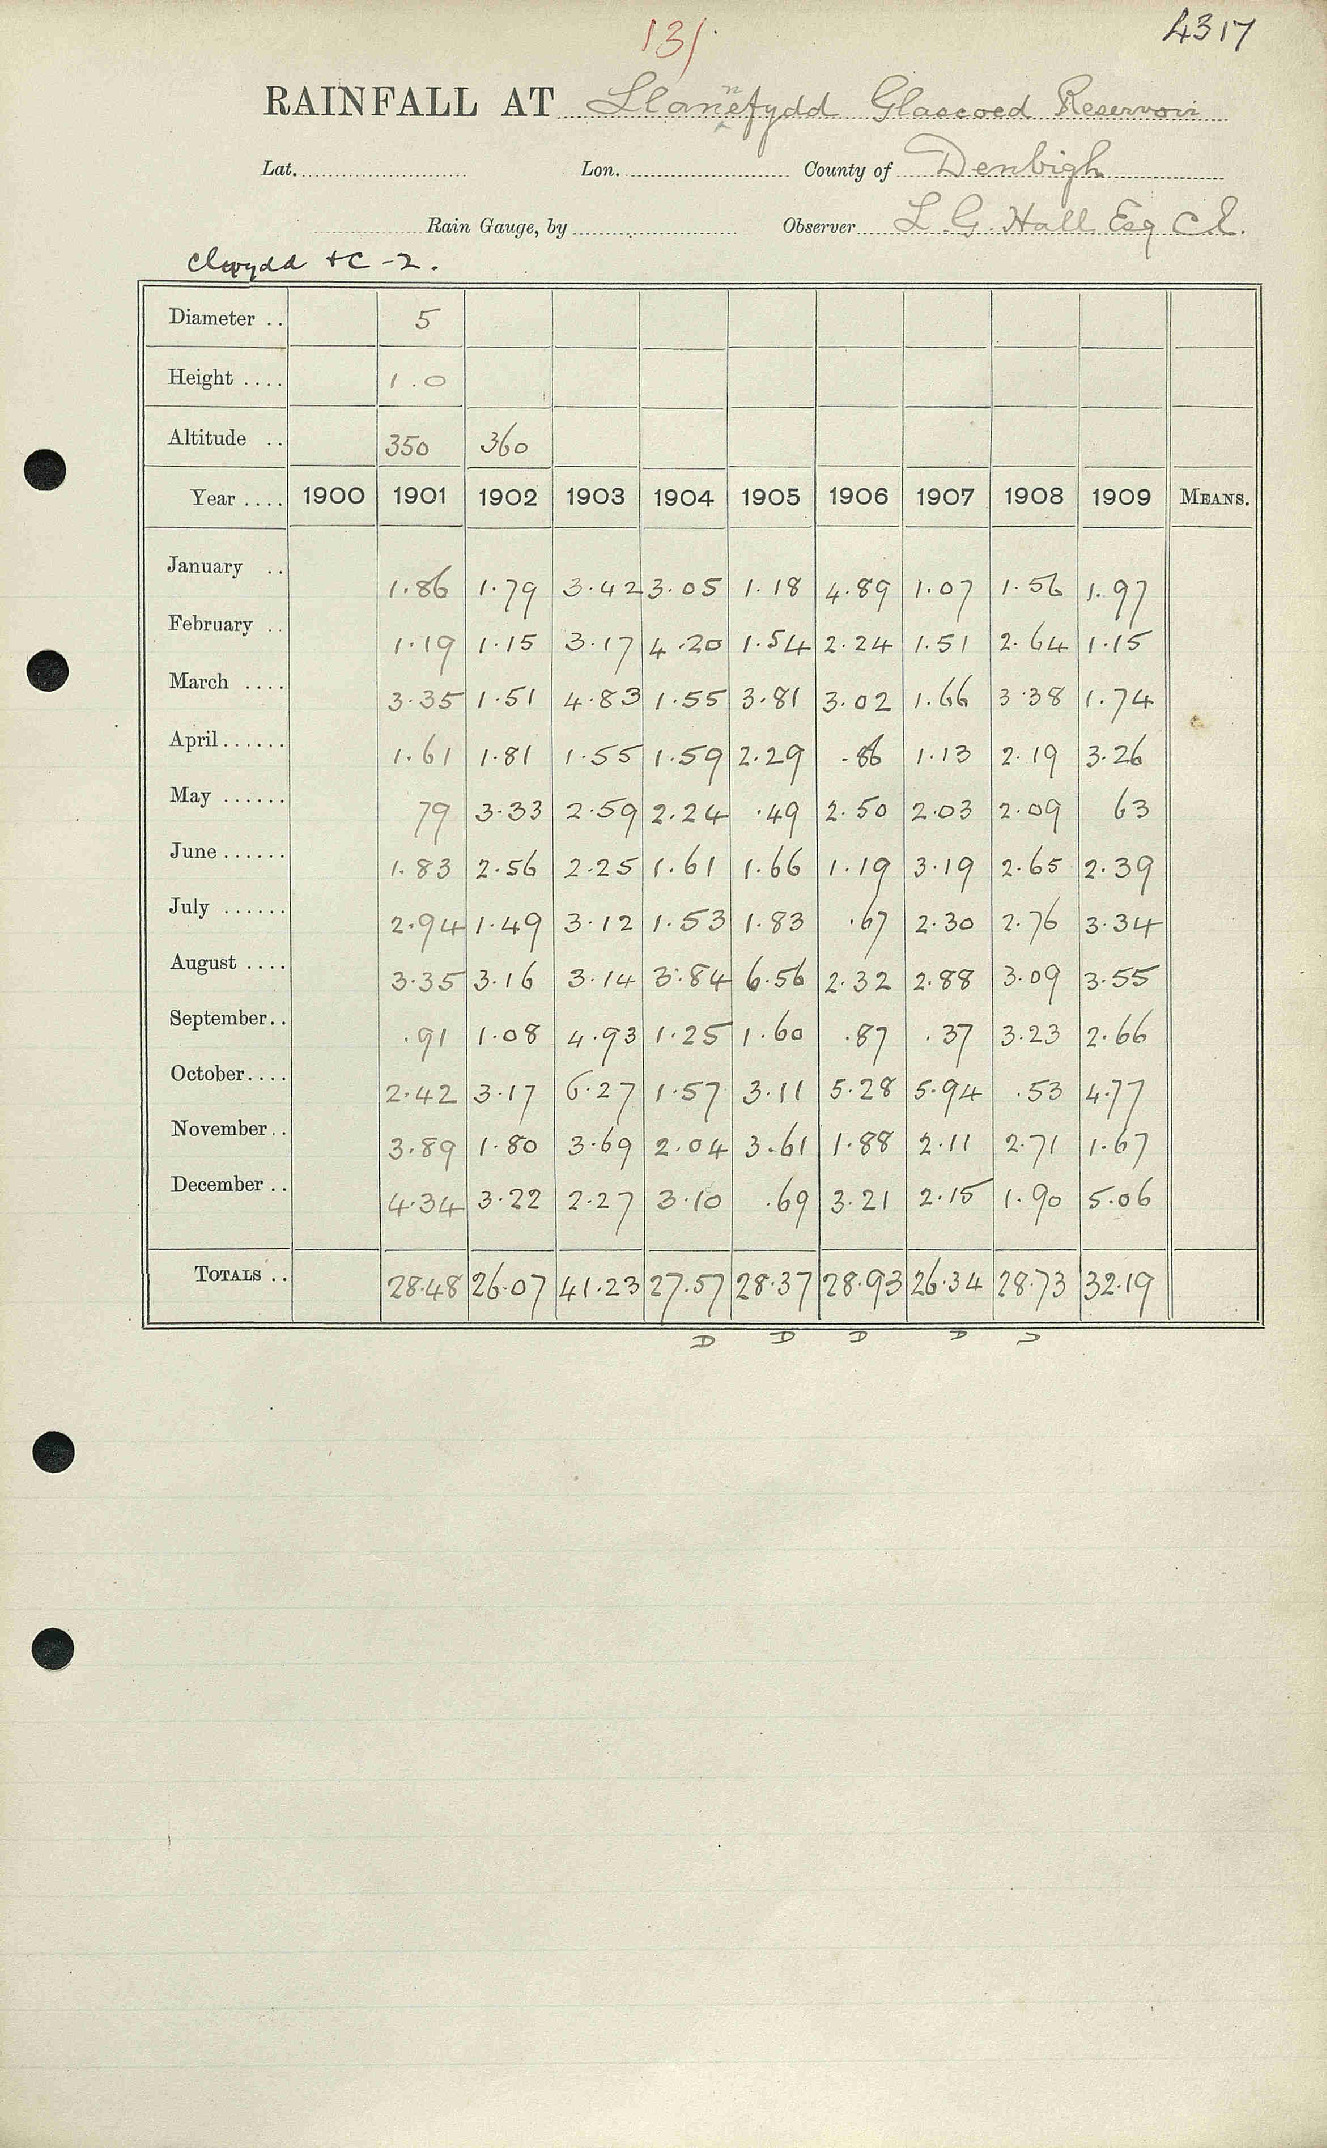 131
4317
RAINFALL AT Llannefydd Glascoed Reservoir
Lat. Lon. County of Denbigh
Rain Gauge, by Observer L. G. Hall Esq C.E.
Clwydd +C -2.
Diameter .. 5
Height .... 1.0
Altitude .. 350 360
Year .... 1900 1901 1902 1903 1904 1905 1906 1907 1908 1909 MEANS.
January .. 1.86 1.79 3.42 3.05 1.18 4.89 1.07 1.56 1.97
February .. 1.19 1.15 3.17 4.20 1.54 2.24 1.51 2.64 1.15
March .... 3.35 1.51 4.83 1.55 3.81 3.02 1.66 3.38 1.74
April...... 1.61 1.81 1.55 1.59 2.29 .86 1.13 2.19 3.26
May ...... 79 3.33 2.59 2.24 .49 2.50 2.03 2.09 63
June...... 1.83 2.56 2.25 1.61 1.66 1.19 3.19 2.65 2.39
July ...... 2.94 1.49 3.12 1.53 1.83 .67 2.30 2.76 3.34
August .... 3.35 3.16 3.14 3.84 6.56 2.32 2.88 3.09 3.55
September.. .91 1.08 4.93 1.25 1.60 .87 .37 3.23 2.66
October.... 2.42 3.17 6.27 1.57 3.11 5.28 5.94 .53 4.77
November.. 3.89 1.80 3.69 2.04 3.61 1.88 2.11 2.71 1.67
December .. 4.34 3.22 2.27 3.10 .69 3.21 2.15 1.90 5.06
TOTALS .. 28.48 26.07 41.23 27.57 28.37 28.93 26.34 28.73 32.19
D D D D D